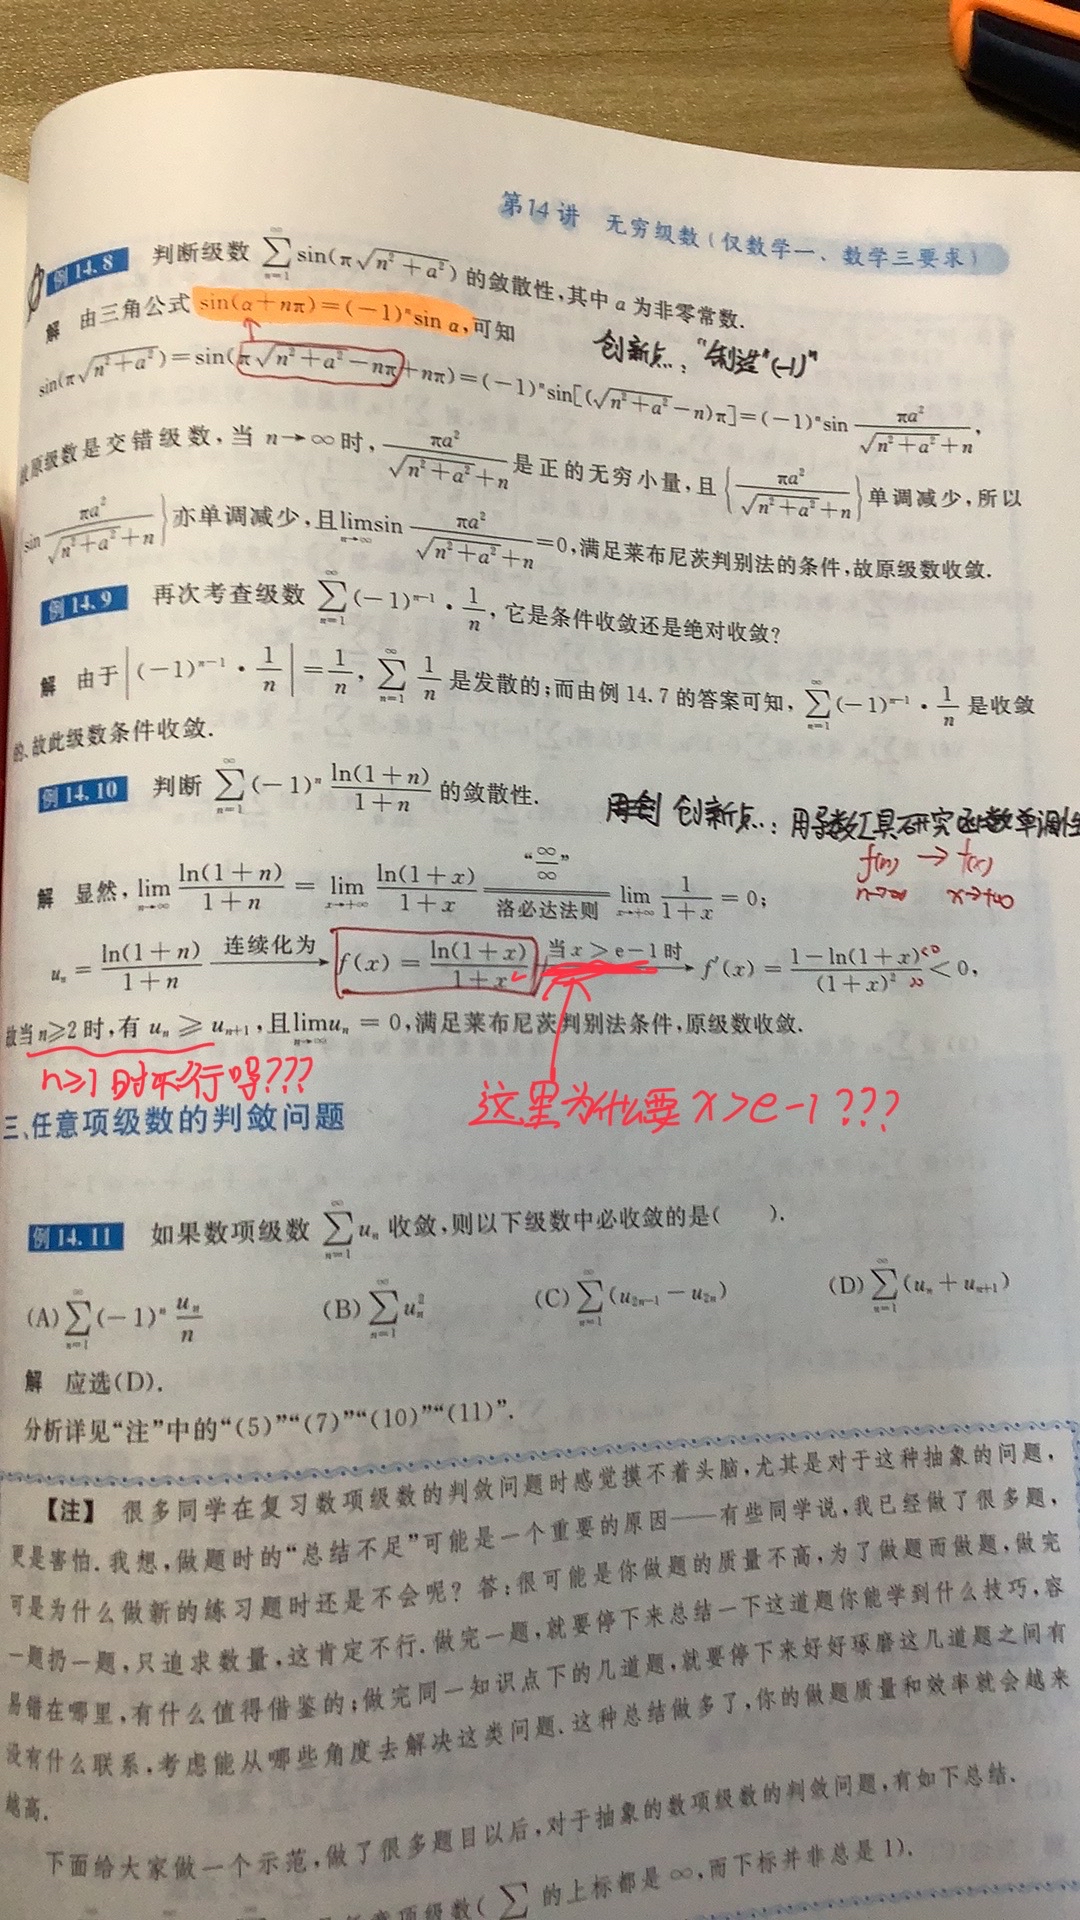 第14讲 无穷级数(仅数学一、数学三要求)
例14.8 判断级数 $\sum_{n=1}^{\infty}\sin(\pi\sqrt{n^2+a^2})$ 的敛散性,其中 a 为非零常数.
解 由三角公式 $\sin(\alpha+n\pi)=(-1)^n\sin\alpha$,可知
创新点:"制造"(-1)"
$\sin(\pi\sqrt{n^2+a^2})=\sin(\pi\sqrt{n^2+a^2}-n\pi+n\pi)=(-1)^n\sin[(\sqrt{n^2+a^2}-n)\pi]=(-1)^n\sin\frac{\pi a^2}{\sqrt{n^2+a^2}+n}$,
故原级数是交错级数,当 $n\to\infty$ 时,$\frac{\pi a^2}{\sqrt{n^2+a^2}+n}$ 是正的无穷小量,且 $\left\{\frac{\pi a^2}{\sqrt{n^2+a^2}+n}\right\}$ 单调减少,所以
$\left\{\sin\frac{\pi a^2}{\sqrt{n^2+a^2}+n}\right\}$ 亦单调减少,且 $\lim_{n\to\infty}\sin\frac{\pi a^2}{\sqrt{n^2+a^2}+n}=0$,满足莱布尼茨判别法的条件,故原级数收敛.
例14.9 再次考查级数 $\sum_{n=1}^{\infty}(-1)^{n-1}\cdot\frac{1}{n}$,它是条件收敛还是绝对收敛?
解 由于 $\left|(-1)^{n-1}\cdot\frac{1}{n}\right|=\frac{1}{n}$,$\sum_{n=1}^{\infty}\frac{1}{n}$ 是发散的;而由例14.7的答案可知,$\sum_{n=1}^{\infty}(-1)^{n-1}\cdot\frac{1}{n}$ 是收敛
的,故此级数条件收敛.
例14.10 判断 $\sum_{n=1}^{\infty}(-1)^n\frac{\ln(1+n)}{1+n}$ 的敛散性.
创新点:用导数工具研究函数单调性
f(n) → f(x)
n→∞ x→+∞
解 显然,$\lim_{n\to\infty}\frac{\ln(1+n)}{1+n}=\lim_{x\to+\infty}\frac{\ln(1+x)}{1+x}$ "$\frac{\infty}{\infty}$" 洛必达法则 $\lim_{x\to+\infty}\frac{1}{1+x}=0$;
$u_n=\frac{\ln(1+n)}{1+n}$ 连续化为→ $f(x)=\frac{\ln(1+x)}{1+x}$ 当 x>e-1 时→ $f'(x)=\frac{1-\ln(1+x)}{(1+x)^2}<0$,
<0
>0
故当 n≥2 时,有 $u_n\geqslant u_{n+1}$,且 $\lim_{n\to\infty}u_n=0$,满足莱布尼茨判别法条件,原级数收敛.
n≥1时不行吗???
这里为什么要 x>e-1???
三、任意项级数的判敛问题
例14.11 如果数项级数 $\sum_{n=1}^{\infty}u_n$ 收敛,则以下级数中必收敛的是( ).
(A)$\sum_{n=1}^{\infty}(-1)^n\frac{u_n}{n}$ (B)$\sum_{n=1}^{\infty}u_n^2$ (C)$\sum_{n=1}^{\infty}(u_{2n-1}-u_{2n})$ (D)$\sum_{n=1}^{\infty}(u_n+u_{n+1})$
解 应选(D).
分析详见“注”中的“(5)”“(7)”“(10)”“(11)”.
【注】 很多同学在复习数项级数的判敛问题时感觉摸不着头脑,尤其是对于这种抽象的问题,
更是害怕.我想,做题时的“总结不足”可能是一个重要的原因——有些同学说,我已经做了很多题,
可是为什么做新的练习题时还是不会呢?答:很可能是你做题的质量不高,为了做题而做题,做完
一题扔一题,只追求数量,这肯定不行.做完一题,就要停下来总结一下这道题你能学到什么技巧,容
易错在哪里,有什么值得借鉴的;做完同一知识点下的几道题,就要停下来好好琢磨这几道题之间有
没有什么联系,考虑能从哪些角度去解决这类问题.这种总结做多了,你的做题质量和效率就会越来
越高.
下面给大家做一个示范,做了很多题目以后,对于抽象的数项级数的判敛问题,有如下总结.
任意项级数(∑的上标都是∞,而下标并非总是1).